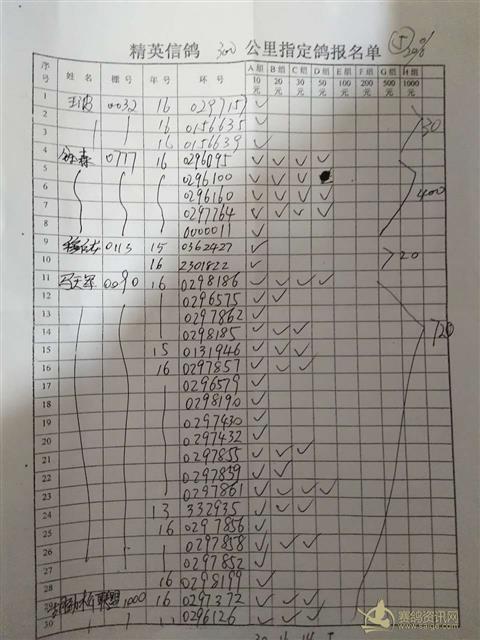 精英信鸽 300 公里指定鸽报名单 ⑤
序号 姓名 棚号 年号 环号 A组 10元 B组 20元 C组 30元 D组 50元 E组 100元 F组 200元 G组 500元 H组 1000元
1 王波 0032 16 029715 ✓
2 16 0156635 ✓
3 16 0156639 ✓ 30
4 0777 16 0296095 ✓ ✓ ✓ ✓
5 0296100 ✓ ✓ ✓
6 0296160 ✓ ✓ ✓ ✓ 400
7 0297764 ✓ ✓ ✓ ✓
8 0000011 ✓
9 0113 15 0362427 ✓
10 16 2301822 ✓ 20
11 0090 16 0298186 ✓ ✓ ✓ ✓
12 0296575 ✓ ✓
13 0297862 ✓
14 0298185 ✓ ✓ ✓ 720
15 15 0131946 ✓ ✓ ✓
16 16 0297857 ✓ ✓ ✓
17 0296579 ✓
18 0298190 ✓
19 0297430 ✓
20 0297432 ✓
21 0297855 ✓ ✓ ✓
22 0297839 ✓ ✓
23 0297861 ✓ ✓ ✓ ✓
24 13 332935 ✓ ✓ ✓
25 16 0297856 ✓
26 0297858 ✓ ✓ ✓
27 0297852 ✓
28 16 0298199 ✓
29 联盟 1000 16 0297372 ✓ ✓ ✓
30 0296126 ✓ ✓ ✓
赛鸽资讯网
www.saige.com